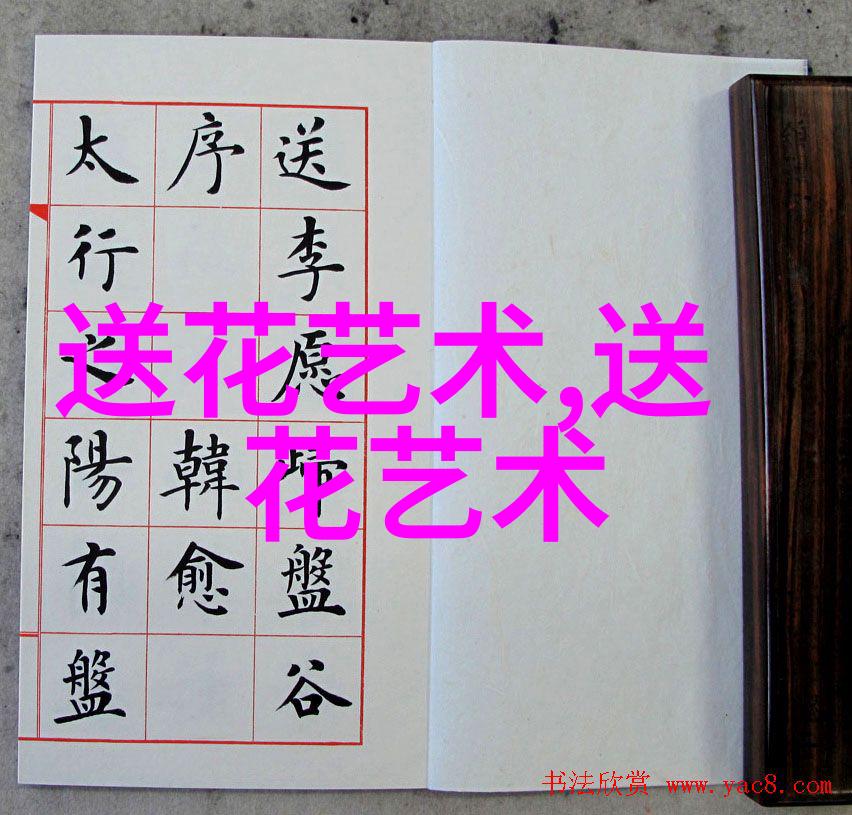 送李愿歸盤谷
序 韓愈
太行之陽有盤
送花艺术,送
花艺术
书法欣赏 www.yac8.com